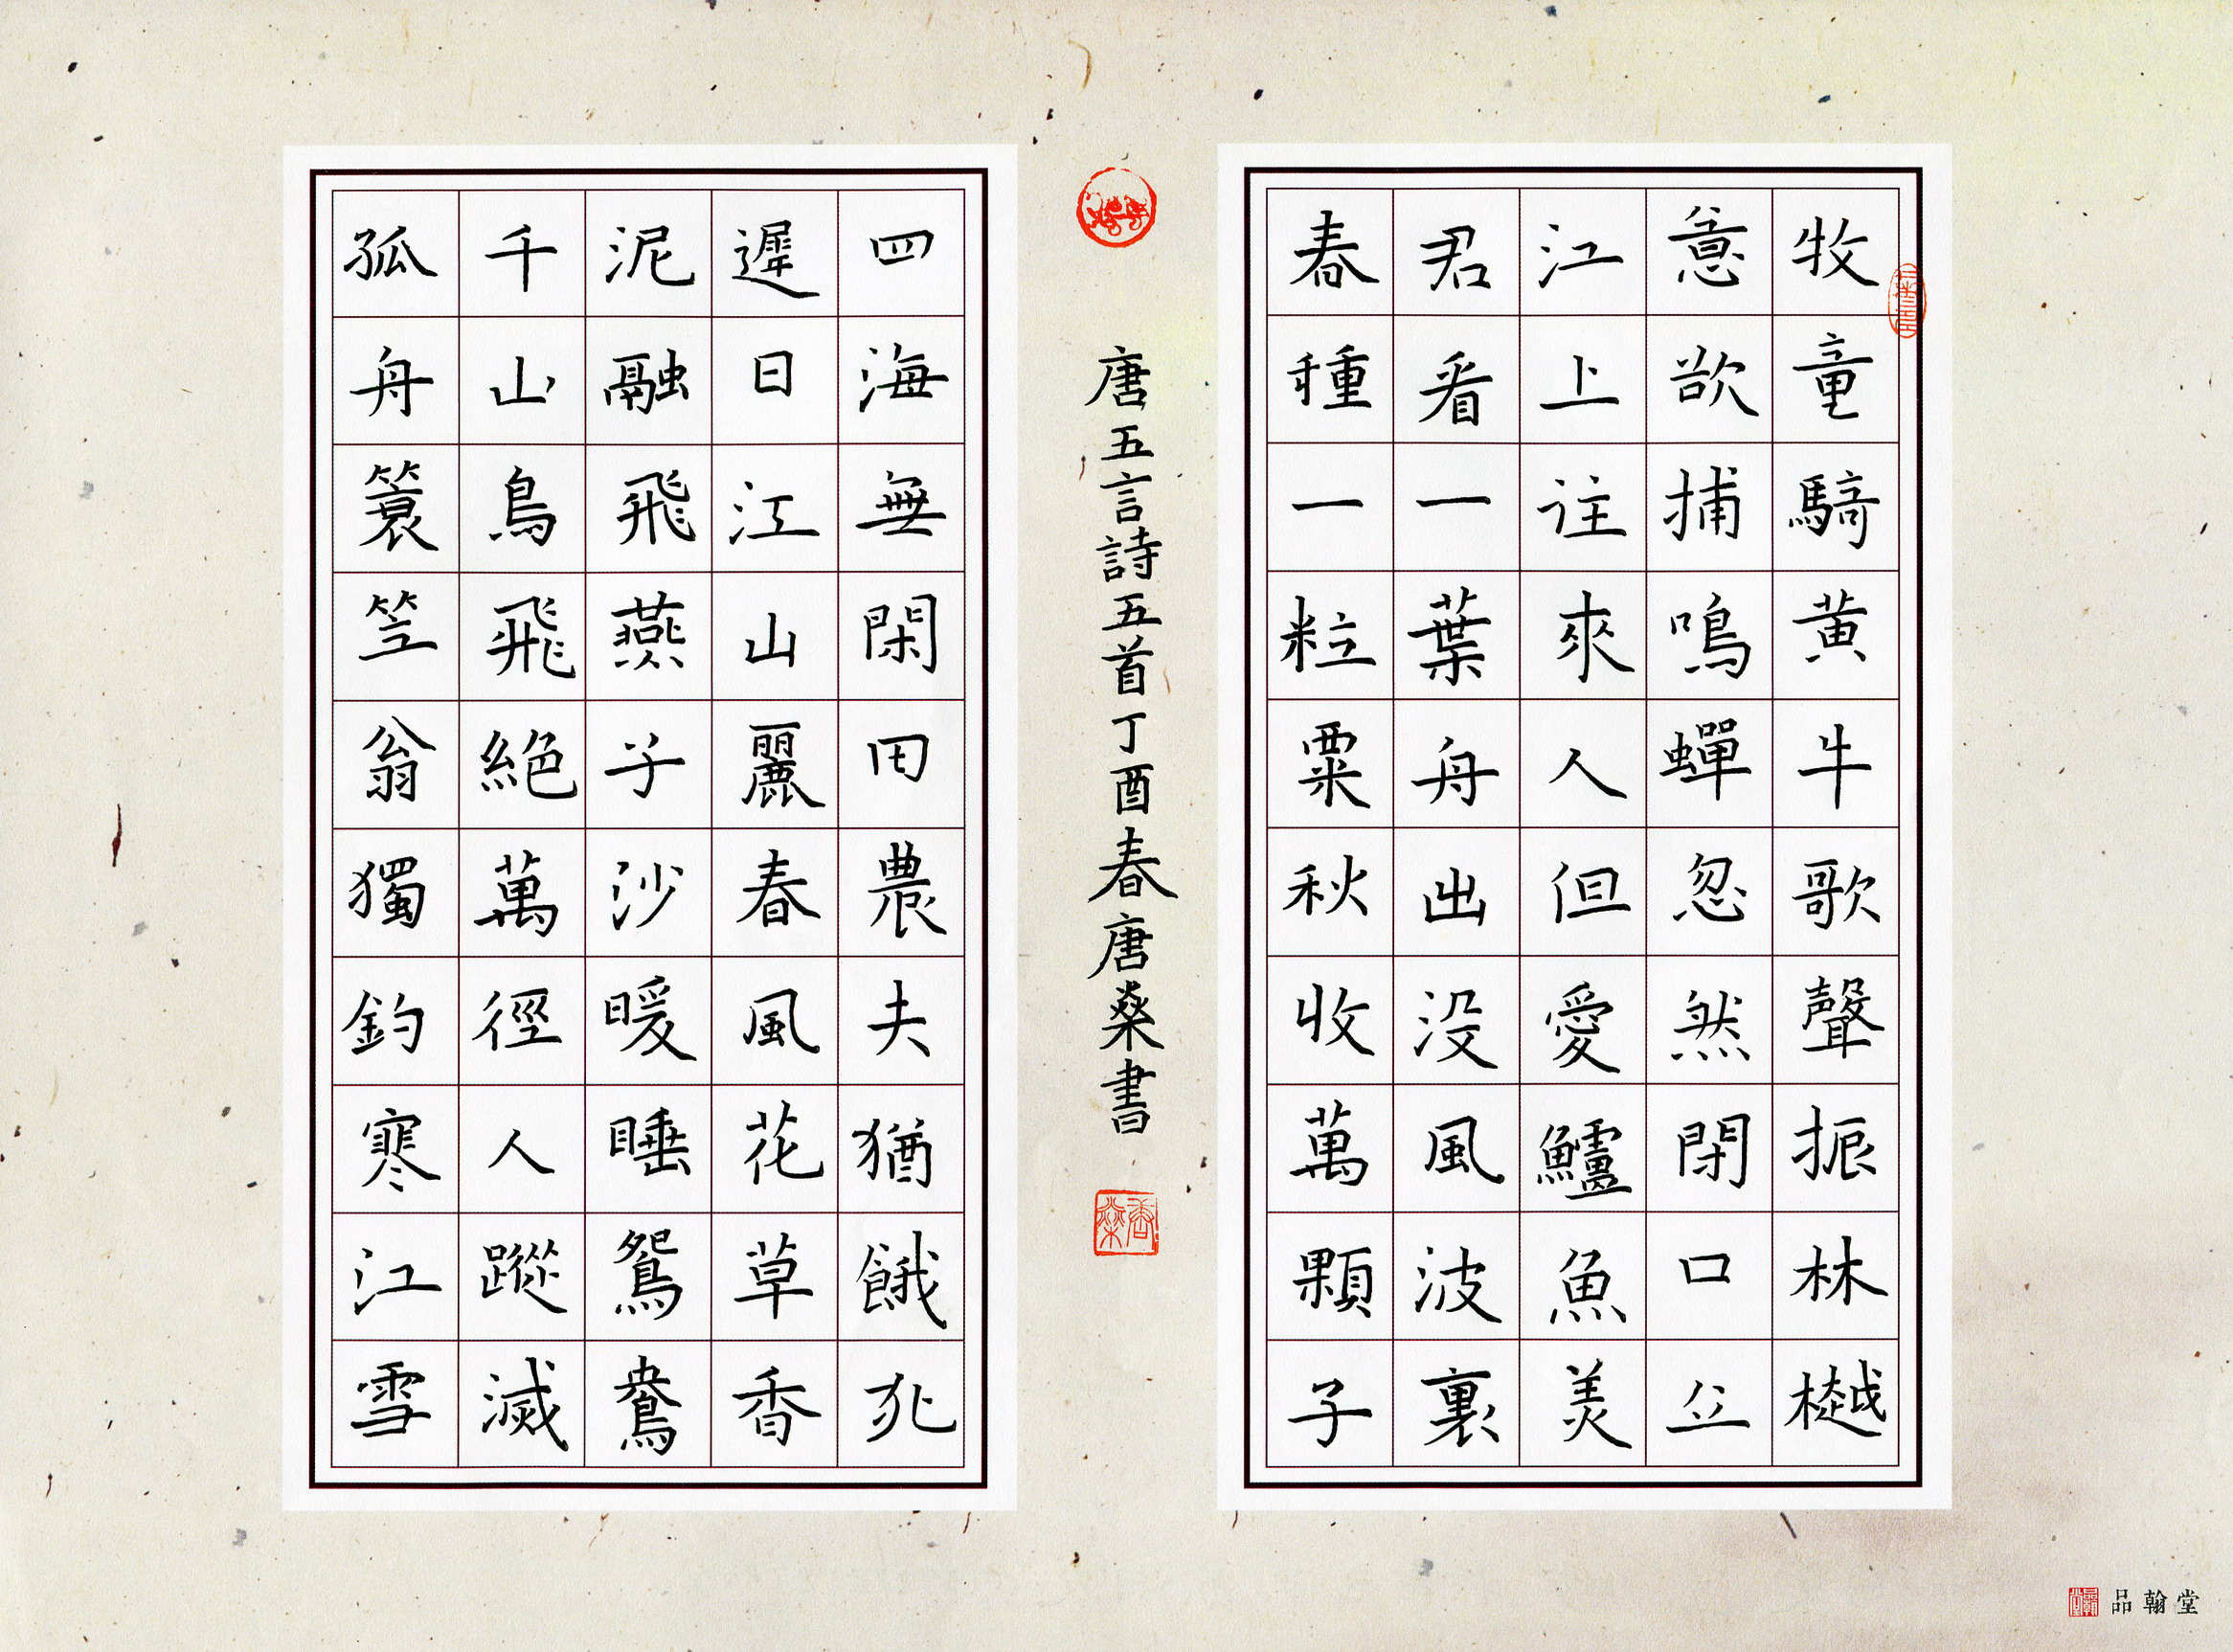 牧童騎黃牛歌聲振林樾
意欲捕鳴蟬忽然閉口立
江上往來人但愛鱸魚美
君看一葉舟出没風波裏
春種一粒粟秋收萬顆子
唐五言詩五首丁酉春唐燊書
唐燊
四海無閑田農夫猶餓死
遲日江山麗春風花草香
泥融飛燕子沙暖睡鴛鴦
千山鳥飛絕萬徑人蹤滅
孤舟簑笠翁獨釣寒江雪
品翰堂